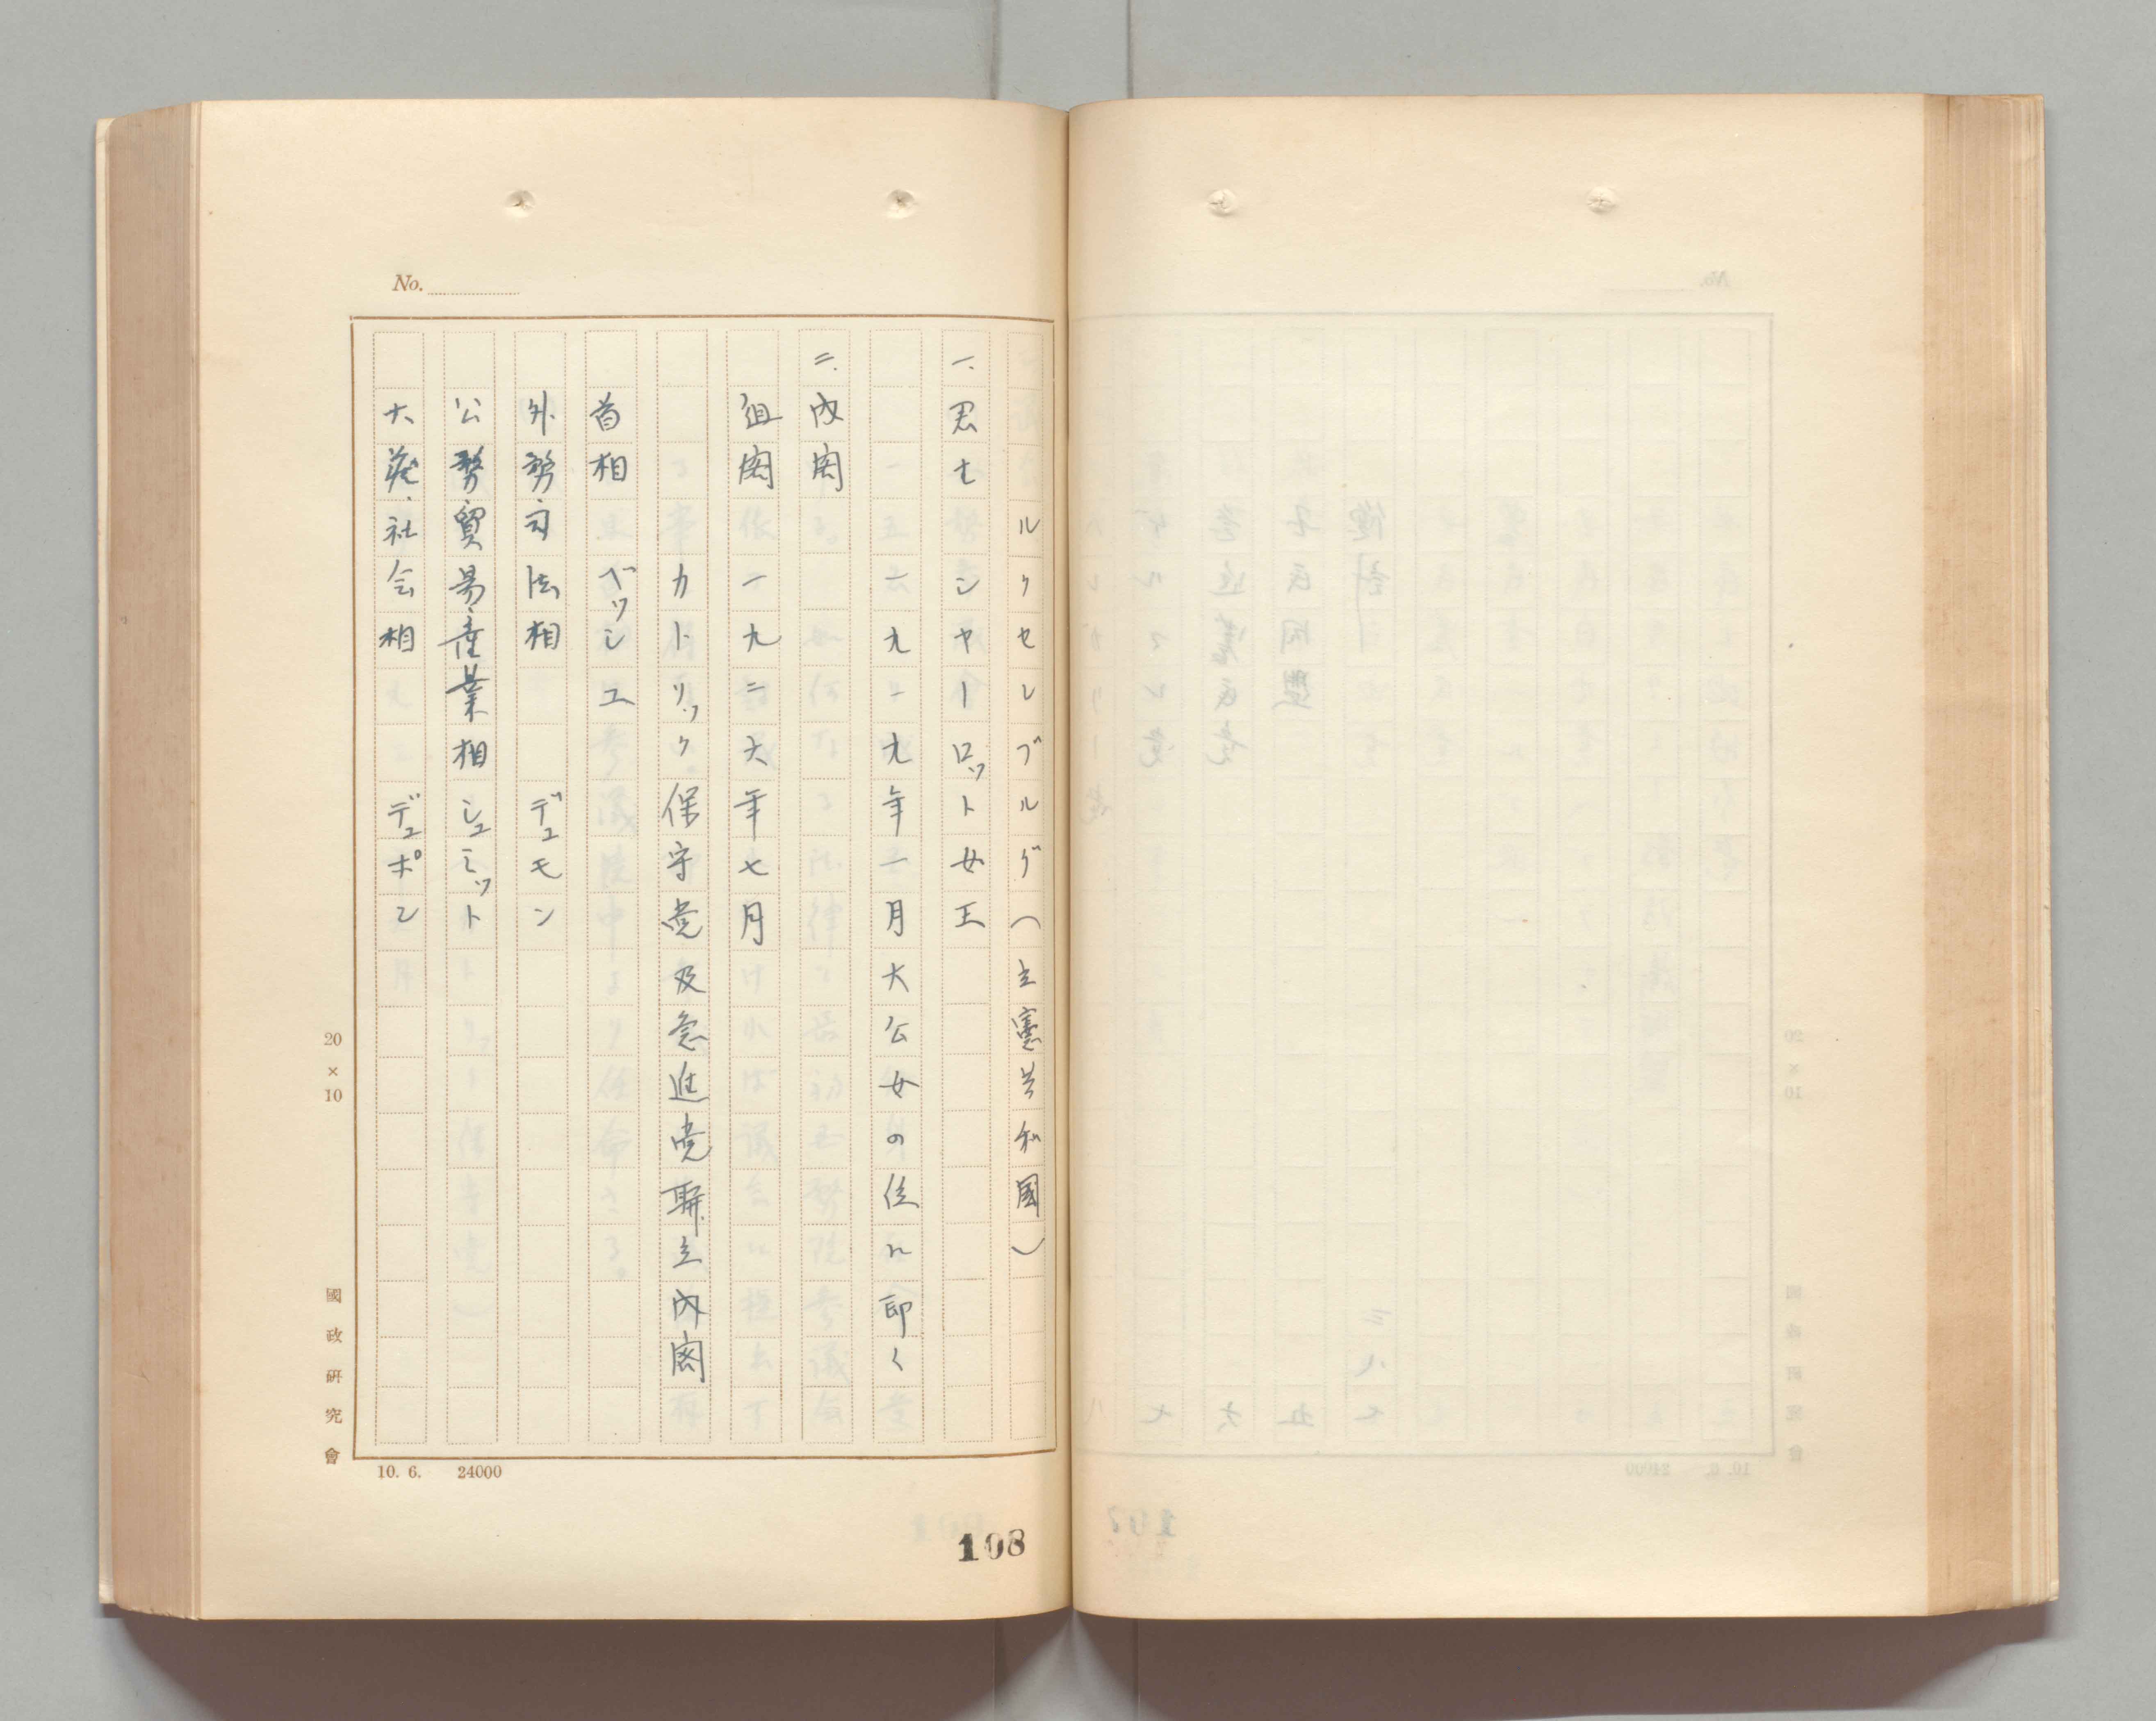 No.
ルクセンブルグ（立憲共和國）
一.君主 シャーロット女王
一九一九年一月大公女の位に即く
二.内閣
組閣 一九二六年七月
カトリック保守党及急進党聯立内閣
首相 ベッシユ
外務、司法相 デュモン
公務貿易、産業相 シュミット
大蔵、社会相 デュポン
20×10
國政硏究會
10. 6. 24000
108